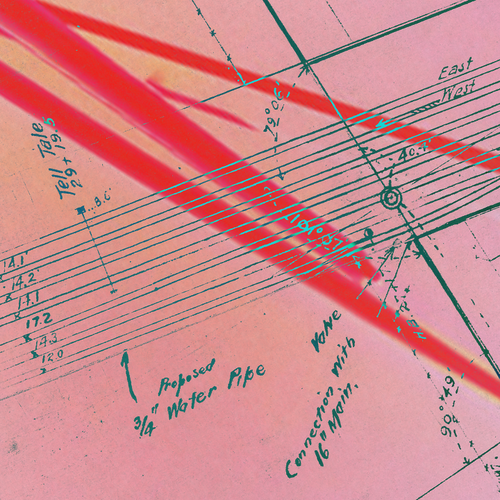 East
West
40.4'
Tell Tale
29 + 19.5
8.0'
14.1'
14.2'
14.1
17.2
14.3
12.0
Proposed
3/4" Water Pipe
Valve
Connection With
16" Main.
90° 49'